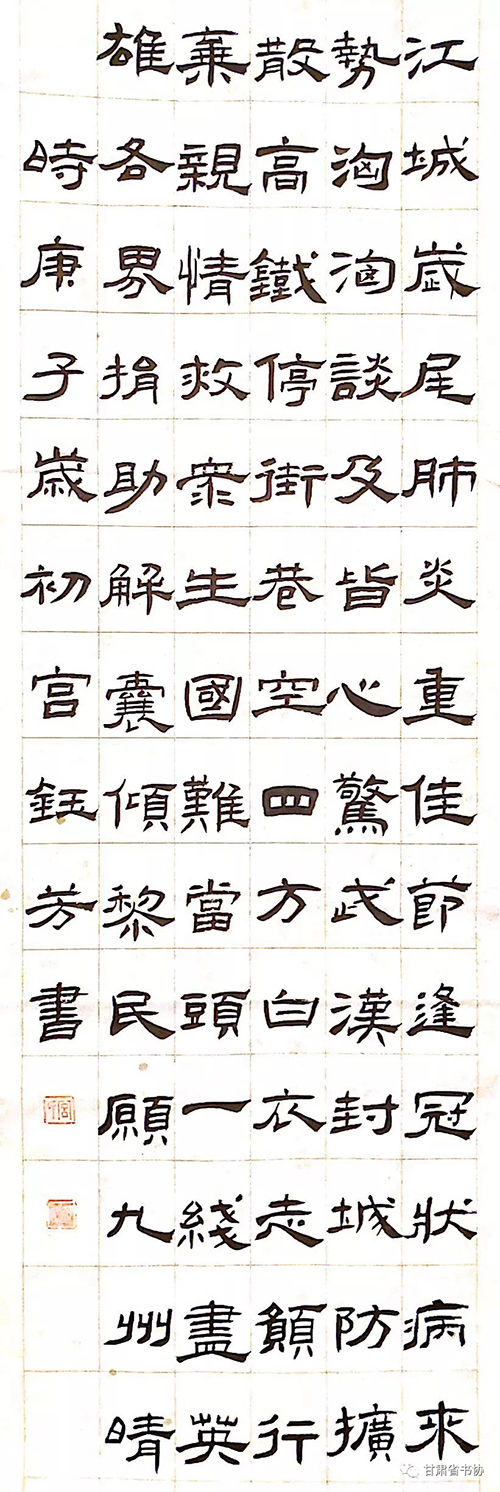 江城歲尾肺炎重佳節逢冠狀病來
勢洶洶談及皆心驚武漢封城防擴
散高鐵停街巷空四方白衣志願行
棄親情救衆生國難當頭一綫盡英
雄各界捐助解囊傾黎民願九州晴
時庚子歲初宫鈺芳書
甘肃省书协